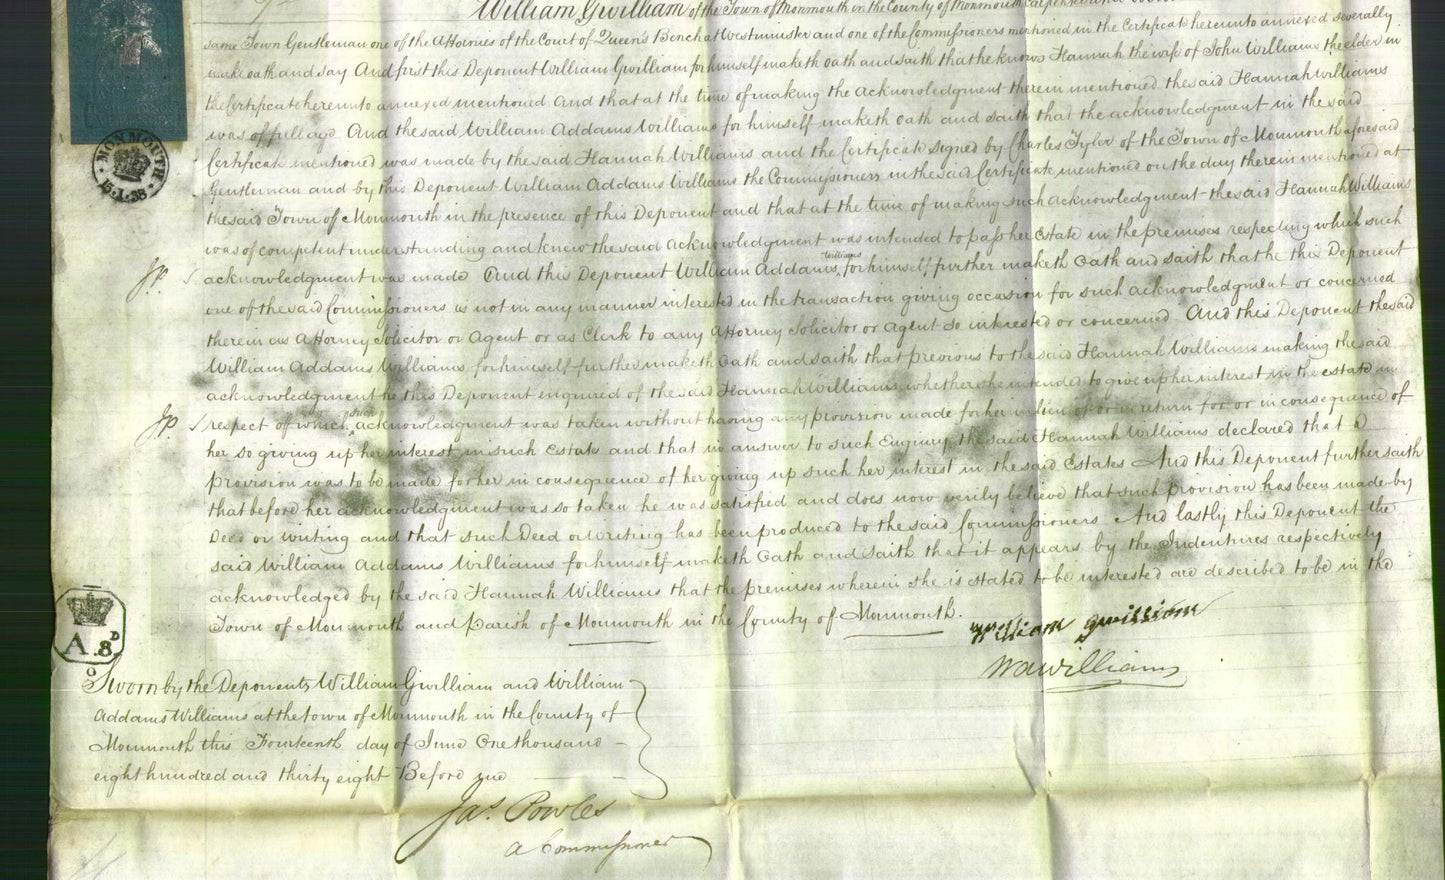 William Gwilliam of the Town of Monmouth in the County of Monmouth
same Town Gentleman one of the Attornies of the Court of Queen's Bench at Westminster and one of the Commissioners mentioned in the Certificate hereunto annexed severally
make oath and say And first this Deponent William Gwilliam for himself maketh oath and saith that he knows Hannah the wife of John Williams the elder in
the Certificate hereunto annexed mentioned And that at the time of making the acknowledgment therein mentioned the said Hannah Williams
was of full age And the said William Addams Williams for himself maketh oath and saith that the acknowledgment in the said
Certificate mentioned was made by the said Hannah Williams and the Certificate signed by Charles Tyler of the Town of Monmouth aforesaid
Gentleman and by this Deponent William Addams Williams the Commissioners in the said Certificate mentioned on the day therein mentioned at
the said Town of Monmouth in the presence of this Deponent and that at the time of making such acknowledgment the said Hannah Williams
was of competent understanding and knew the said acknowledgment was intended to pass her Estate in the premises respecting which such
acknowledgment was made And this Deponent William Addams Williams for himself further maketh Oath and saith that he this Deponent
one of the said Commissioners is not in any manner interested in the transaction giving occasion for such acknowledgment or concerned
therein as Attorney Solicitor or Agent or as Clerk to any Attorney Solicitor or Agent so interested or concerned And this Deponent the said
William Addams Williams for himself further maketh Oath and saith that previous to the said Hannah Williams making the said
acknowledgment he this Deponent enquired of the said Hannah Williams whether she intended to give up her interest in the estate in
respect of which such acknowledgment was taken without having any provision made for her in lieu of or in return for or in consequence of
her so giving up her interest in such Estate and that in answer to such Enquiry the said Hannah Williams declared that a
provision was to be made for her in consequence of her giving up such her interest in the said Estates And this Deponent further saith
that before her acknowledgment was so taken he was satisfied and does now verily believe that such provision has been made by
Deed or writing and that such Deed or Writing has been produced to the said Commissioners And lastly this Deponent the
said William Addams Williams for himself maketh Oath and saith that it appears by the Indentures respectively
acknowledged by the said Hannah Williams that the premises wherein she is stated to be interested are described to be in the
Town of Monmouth and Parish of Monmouth in the County of Monmouth.
William Gwilliam
Wa Williams
Sworn by the Deponents William Gwilliam and William
Addams Williams at the town of Monmouth in the County of
Monmouth this Fourteenth day of June One thousand
eight hundred and thirty eight Before me
Jas. Powles
a Commissioner
JP.
JP.
MONMOUTH
A.D
8